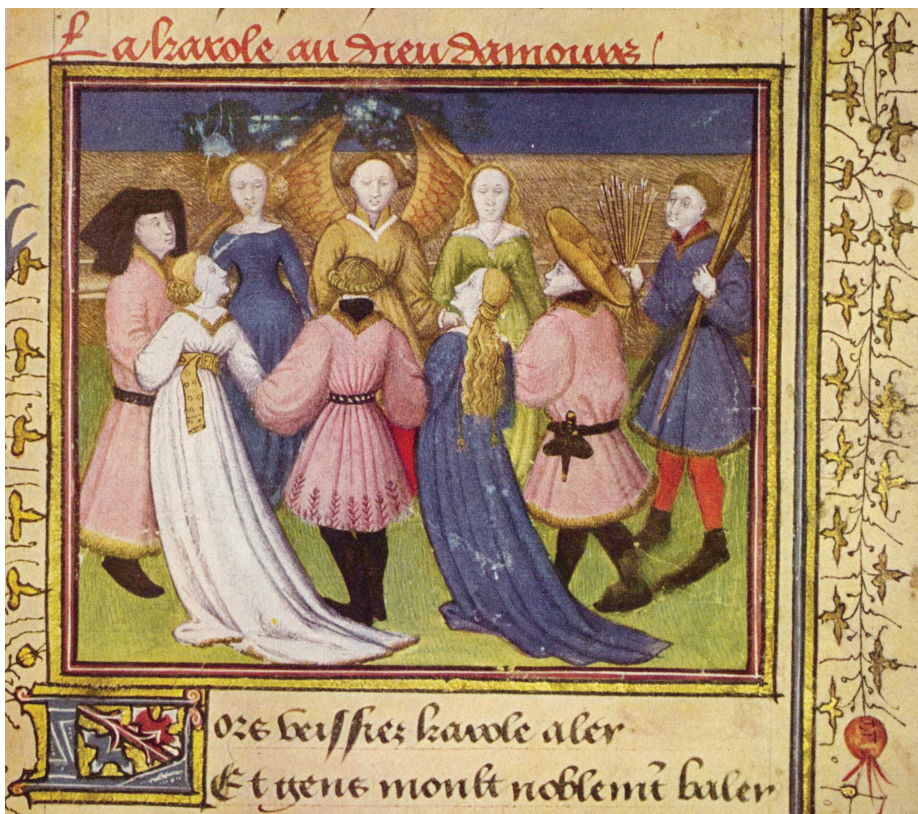 La karole au dieu damours
Lors veissiez karole aler
Et gens moult noblem̃t baler